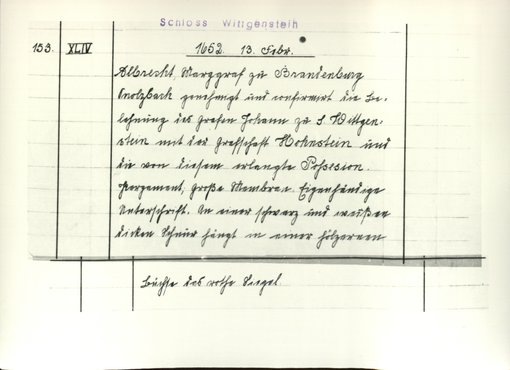 Schloss Wittgenstein
153. XLIV 1652. 13. Febr.
Albrecht, Marggraf zu Brandenburg
genehmigt und confirmirt die Be-
lehnung des Grafen Johann zu S. Wittgen-
stein mit der Grafschaft Hohnstein und
die von diesem erlangte Possesion.
Pergament, große Membran. Eigenhändige
Unterschrift. An einer schwarz und weißen
dicken Schnur hängt in einer hölzernen
Büchse das rothe Siegel.